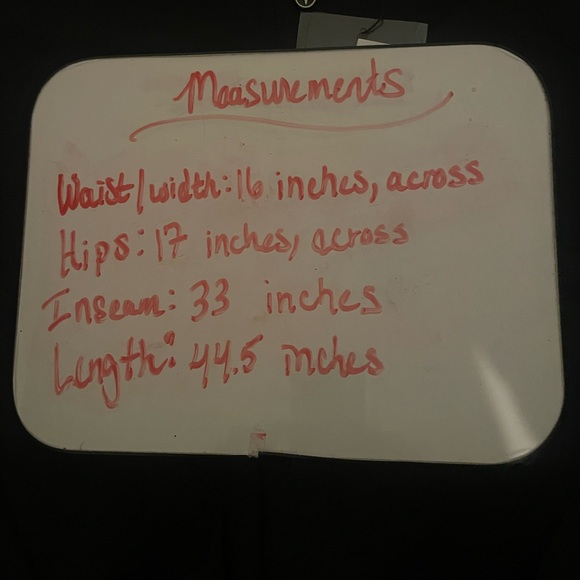 Measurements
Waist/width: 16 inches, across
Hips: 17 inches, across
Inseam: 33 inches
Length: 44.5 inches